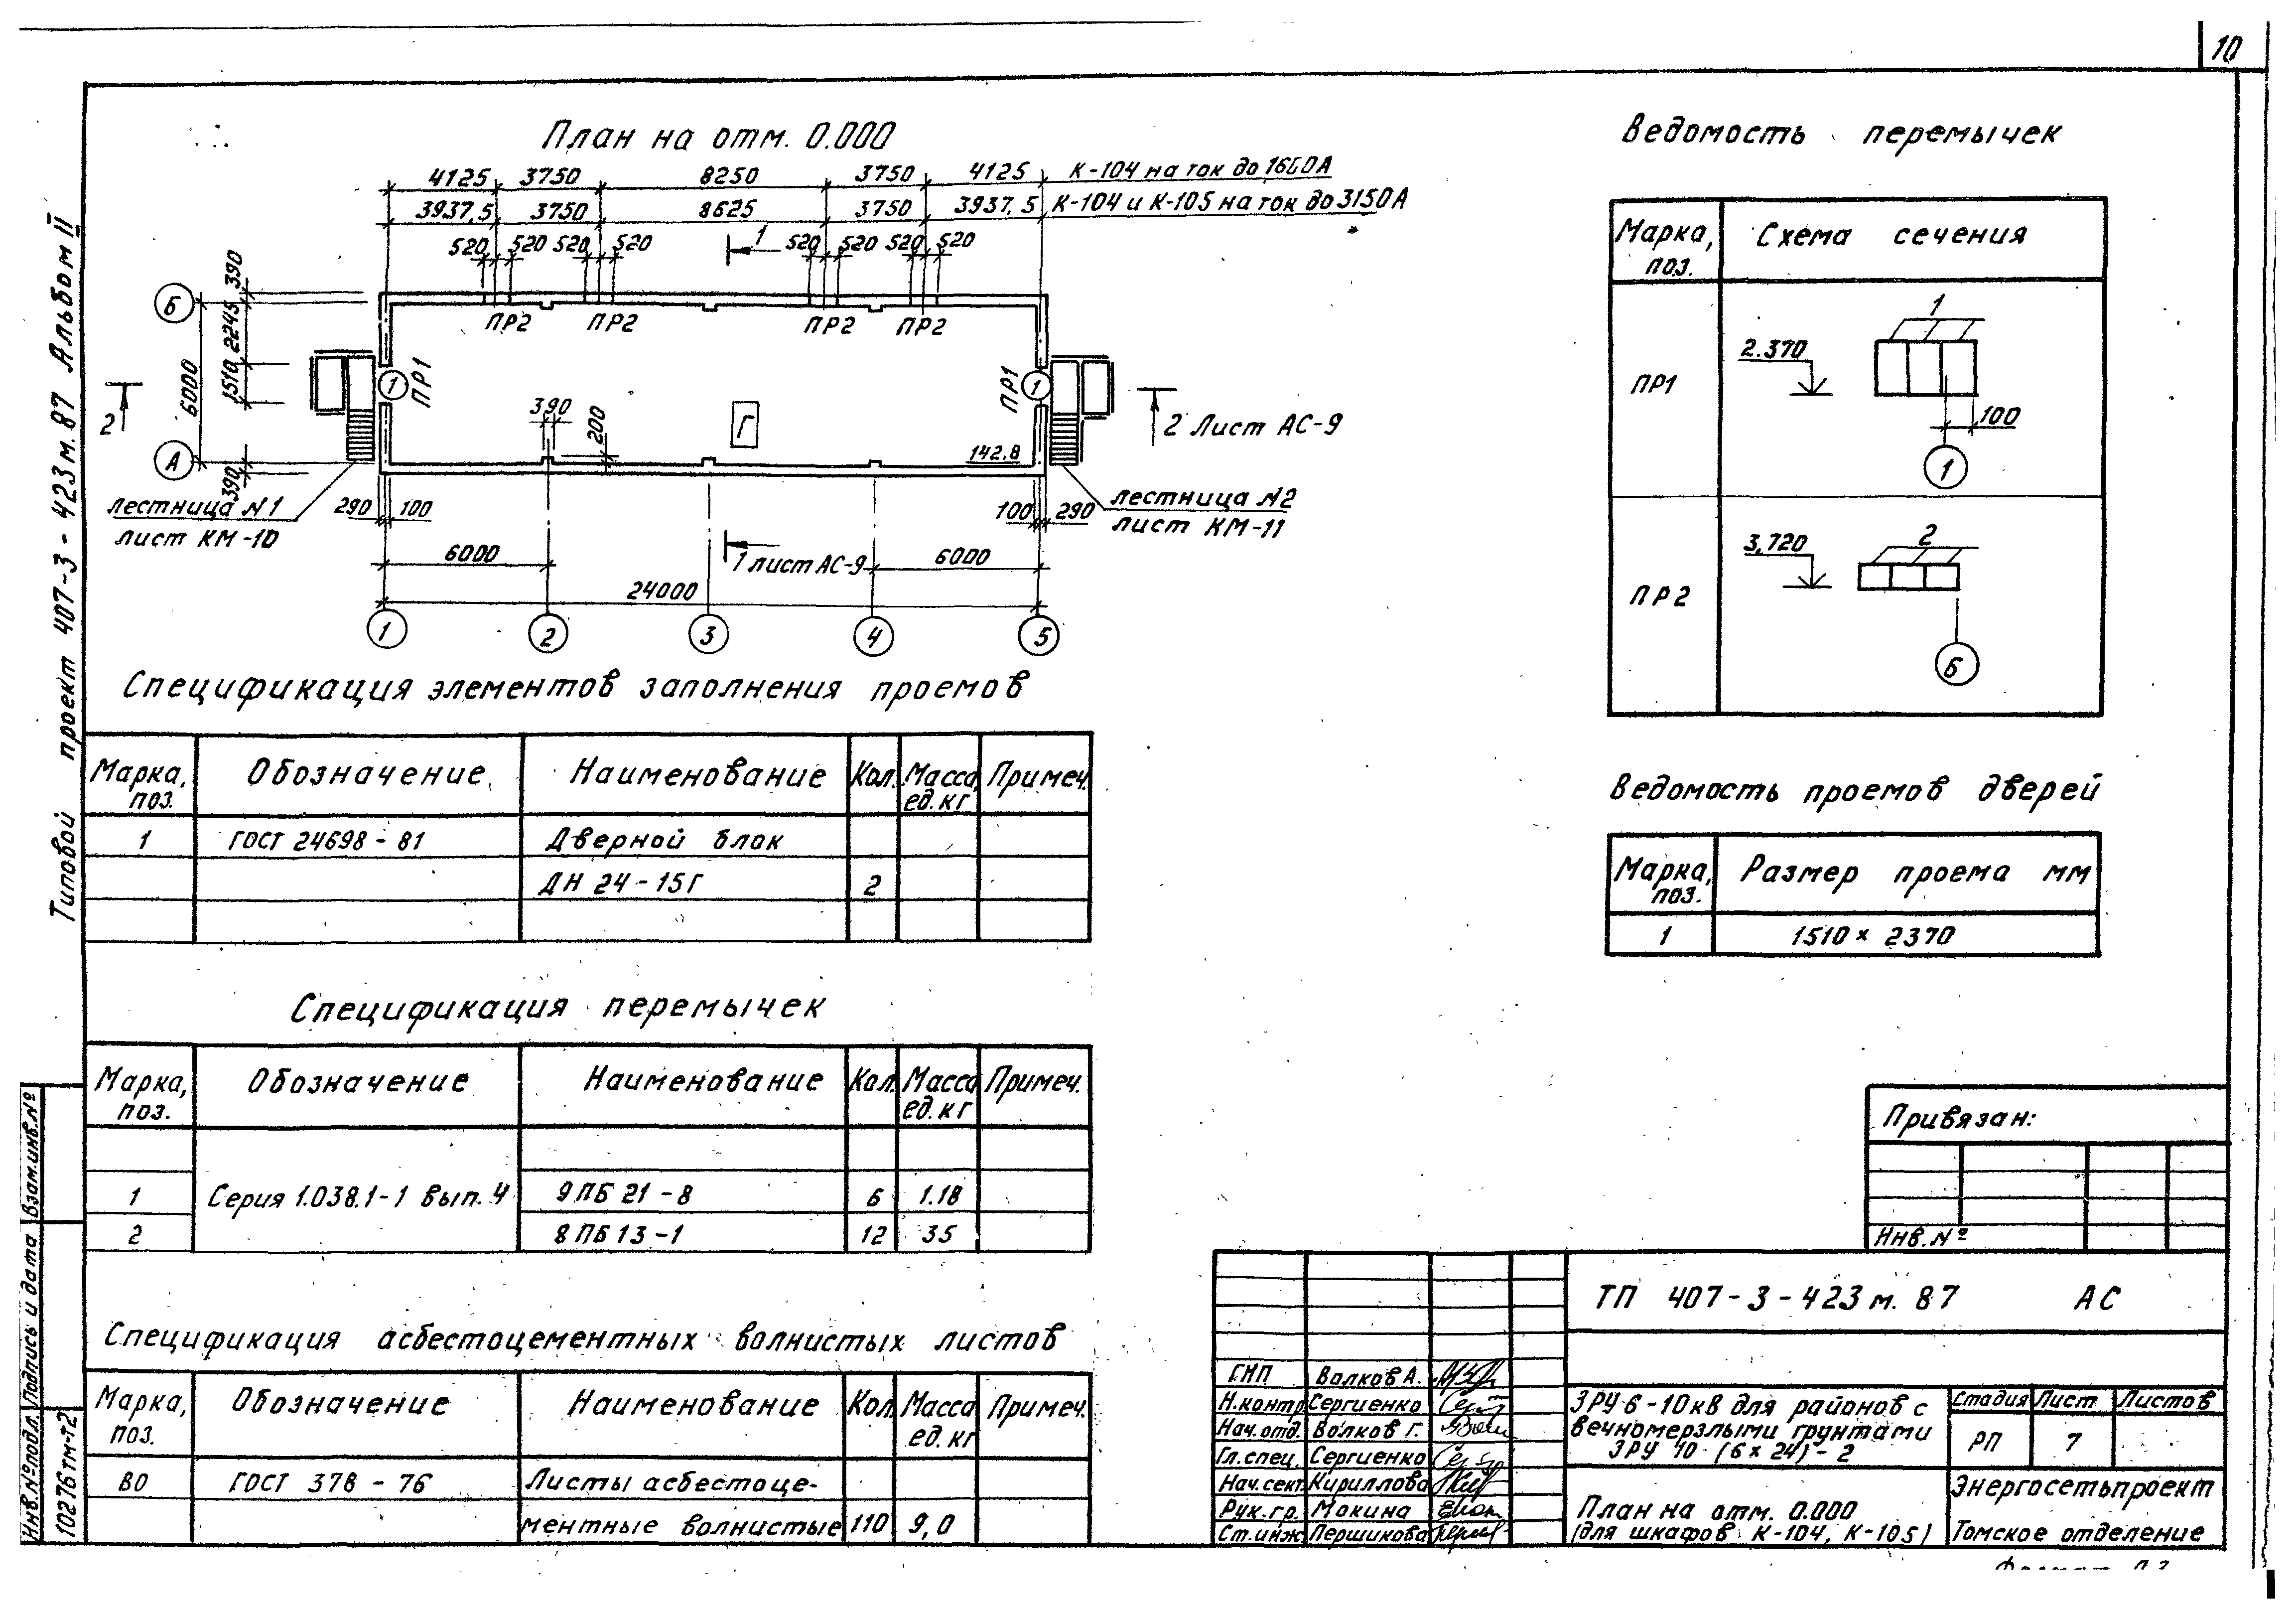 10
План на отм. 0.000
4125 3750 8250 3750 4125 К-104 на ток до 1600А
3937,5 3750 8625 3750 3937,5 К-104 и К-105 на ток до 3150А
520 520 520 520 1 520 520 520 520
390
2245
1510
6000
390
Б
А
ПР2 ПР2 ПР2 ПР2
1 ПР1
ПР1 1
2
390
200
Г
142.8
2 Лист АС-9
лестница N1
лист КМ-10
290 100
100 290
лестница N2
лист КМ-11
6000
1 лист АС-9
6000
24000
1 2 3 4 5
Ведомость перемычек
Марка, поз.
Схема сечения
ПР1
2.370
1
100
1
ПР2
3,720
2
Б
Спецификация элементов заполнения проемов
Марка, поз. Обозначение Наименование Кол. Масса ед. кг Примеч.
1 ГОСТ 24698-81 Дверной блок
ДН 24-15Г 2
Ведомость проемов дверей
Марка, поз. Размер проема мм
1 1510 × 2370
Спецификация перемычек
Марка, поз. Обозначение Наименование Кол. Масса ед. кг Примеч.
1 Серия 1.038.1-1 вып. 4 9ПБ 21-8 6 1.18
2 8ПБ 13-1 12 35
Спецификация асбестоцементных волнистых листов
Марка, поз. Обозначение Наименование Кол. Масса ед. кг Примеч.
ВО ГОСТ 378-76 Листы асбестоце-
ментные волнистые 110 9,0
Привязан:
Инв. №
ТП 407-3-423м.87 АС
ГИП Волков А.
Н.контр Сергиенко
Нач.отд. Волков Г.
Гл.спец. Сергиенко
Нач.сект. Кириллова
Рук.гр. Мокина
Ст.инж. Першикова
ЗРУ 6-10кВ для районов с
вечномерзлыми грунтами
ЗРУ 10-(6×24)-2
Стадия Лист Листов
РП 7
План на отм. 0.000
(для шкафов К-104, К-105)
Энергосетьпроект
Томское отделение
Типовой проект 407-3-423м.87 Альбом II
Инв.№подл. Подпись и дата Взам.инв.№
10276тм-т2